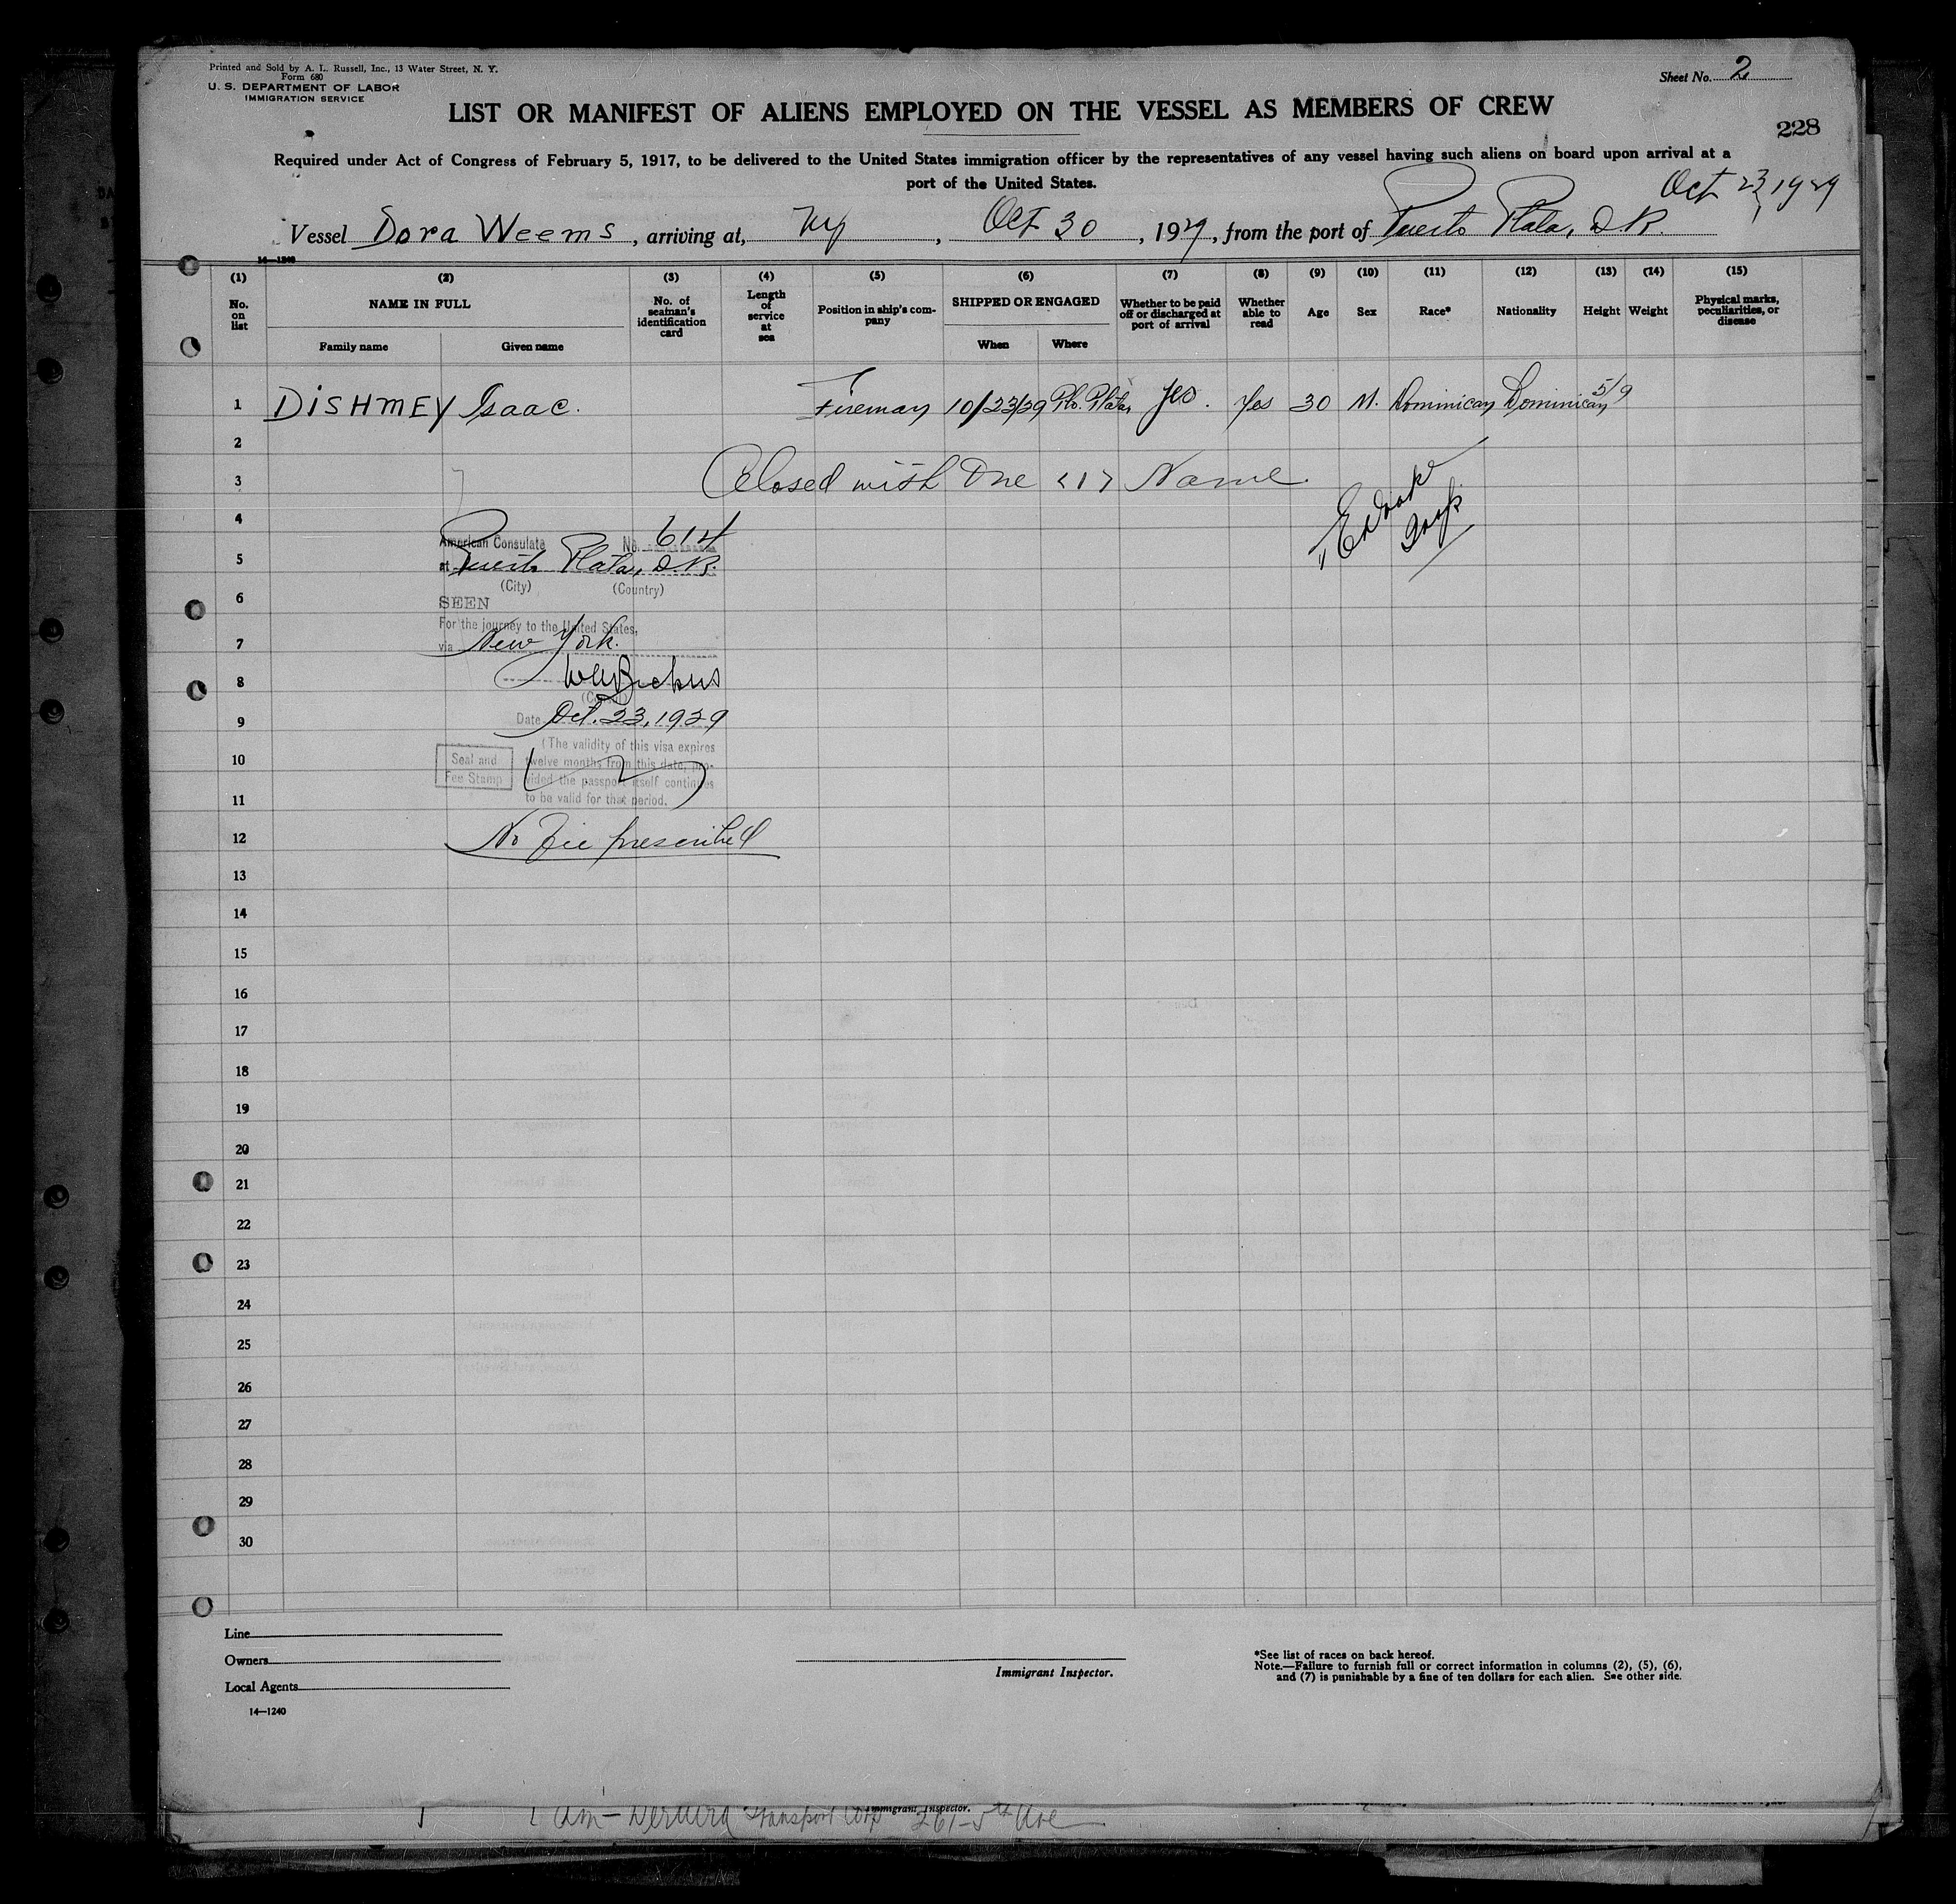 Printed and Sold by A. L. Russell, Inc., 13 Water Street, N. Y.
Form 680
U. S. DEPARTMENT OF LABOR
IMMIGRATION SERVICE
Sheet No. 2
LIST OR MANIFEST OF ALIENS EMPLOYED ON THE VESSEL AS MEMBERS OF CREW
228
Required under Act of Congress of February 5, 1917, to be delivered to the United States immigration officer by the representatives of any vessel having such aliens on board upon arrival at a
port of the United States.
Oct 23, 1929
Vessel Dora Weems, arriving at, NY, Oct 30, 1929, from the port of Puerto Plata, D.R.
14—1240
(1) (2) (3) (4) (5) (6) (7) (8) (9) (10) (11) (12) (13) (14) (15)
No. on list
NAME IN FULL
Family name Given name
No. of seaman's identification card
Length of service at sea
Position in ship's company
SHIPPED OR ENGAGED
When Where
Whether to be paid off or discharged at port of arrival
Whether able to read
Age Sex Race* Nationality Height Weight
Physical marks, peculiarities, or disease
1 DISHMEY Isaac. Fireman 10/23/29 Pto. Plata, Yes. Yes 30 M. Dominican Dominican 5/9
2
3 Closed with One <1> Name
4
American Consulate No. 614
5 at Puerto Plata, D.R.
(City) (Country)
6 SEEN
For the journey to the United States,
7 via New York.
8
(Consul)
9 Date Oct. 23, 1929
(The validity of this visa expires
10 Seal and Fee Stamp twelve months from this date, pro-
vided the passport itself continues
11 to be valid for that period.
12 No Fee prescribed
13
14
15
16
17
18
19
20
21
22
23
24
25
26
27
28
29
30
Line
Owners
Local Agents
14—1240
Immigrant Inspector.
*See list of races on back hereof.
Note.—Failure to furnish full or correct information in columns (2), (5), (6),
and (7) is punishable by a fine of ten dollars for each alien. See other side.
Immigrant Inspector.
Transport Corp 261-5th Ave